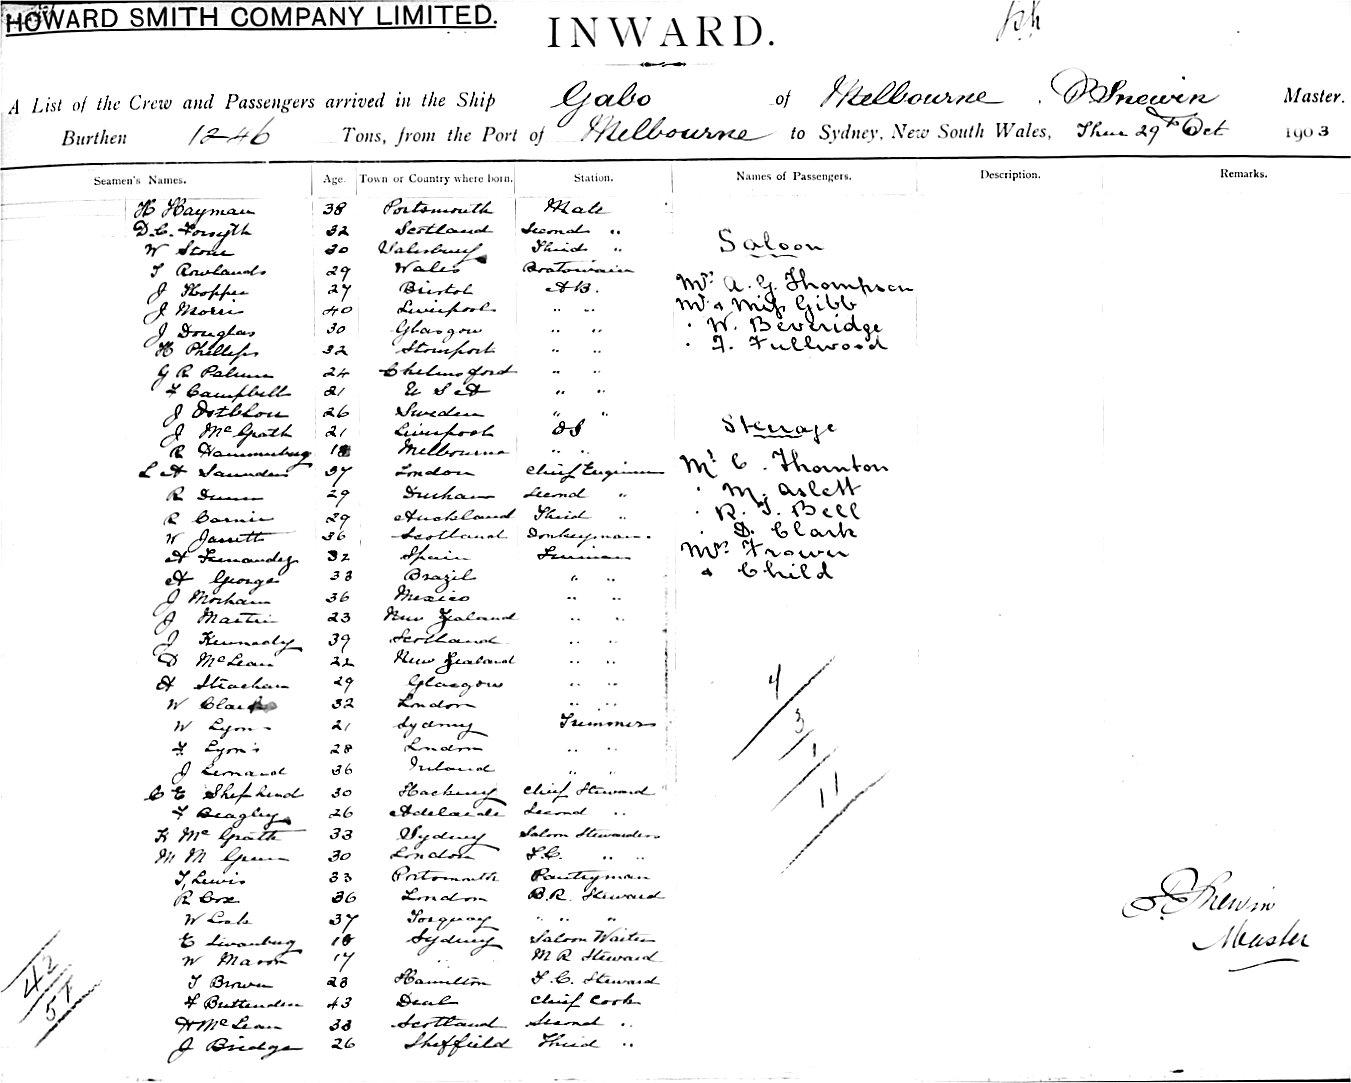 HOWARD SMITH COMPANY LIMITED.
INWARD.
A List of the Crew and Passengers arrived in the Ship Gabo of Melbourne. P Snewin Master.
Burthen 1246 Tons, from the Port of Melbourne to Sydney, New South Wales, Thur 29th Oct 1903
Seamen's Names. Age. Town or Country where born. Station. Names of Passengers. Description. Remarks.
H Hayman 38 Portsmouth Mate
D. C. Forsyth 32 Scotland Second "
W Stone 30 Salisbury Third "
Saloon
T Rowlands 29 Wales Boatswain
J Hopper 27 Bristol AB.
Mrs A. G. Thompson
J Morris 40 Liverpool " "
Mr & Miss Gibb
J Douglas 30 Glasgow " "
" W. Beveridge
H Phillips 32 Stourport " "
" F. Fullwood
G R Palmer 24 Chelmsford " "
F Campbell 21 U S A " "
J 26 Sweden " "
J McGrath 21 Liverpool OS
Steerage
R Hammerburg 18 Melbourne " "
L A Saunders 37 London Chief Engineer
Mr C. Thornton
R Dunn 29 Durham Second "
" M. Aslett
R Carnie 29 Auckland Third "
" R. J. Bell
W Jarrett 36 Scotland Donkeyman.
" D. Clark
A Fernandez 32 Spain Firemen
Mrs Frower
A George 33 Brazil " "
& Child
J Morham 36 Mexico " "
J Martin 23 New Zealand " "
J Kennedy 39 Scotland " "
D McLean 22 New Zealand " "
A Strachan 29 Glasgow " "
W Clark 32 London " "
W Lyons 21 Sydney Trimmers
F Lyons 28 London " "
J Lennard 36 Ireland " "
4
3
1
11
C E Shepherd 30 Hackney Chief Steward
F Beagley 26 Adelaide Second "
K McGrath 33 Sydney Saloon Stewardess
M M Green 30 London F.C. " "
T. Lewis 33 Portsmouth Pantryman
R Cox 36 London B.R. Steward
W Lock 37 Torquay " " "
E Swanburg 18 Sydney Saloon Waiter
W Mason 17 " " M R Steward
T Brown 28 Hamilton F. C. Steward
F Buttenden 43 Deal Chief Cook
H McLean 33 Scotland Second "
J Bridge 26 Sheffield Third "
42
57
P. Snewin
Master